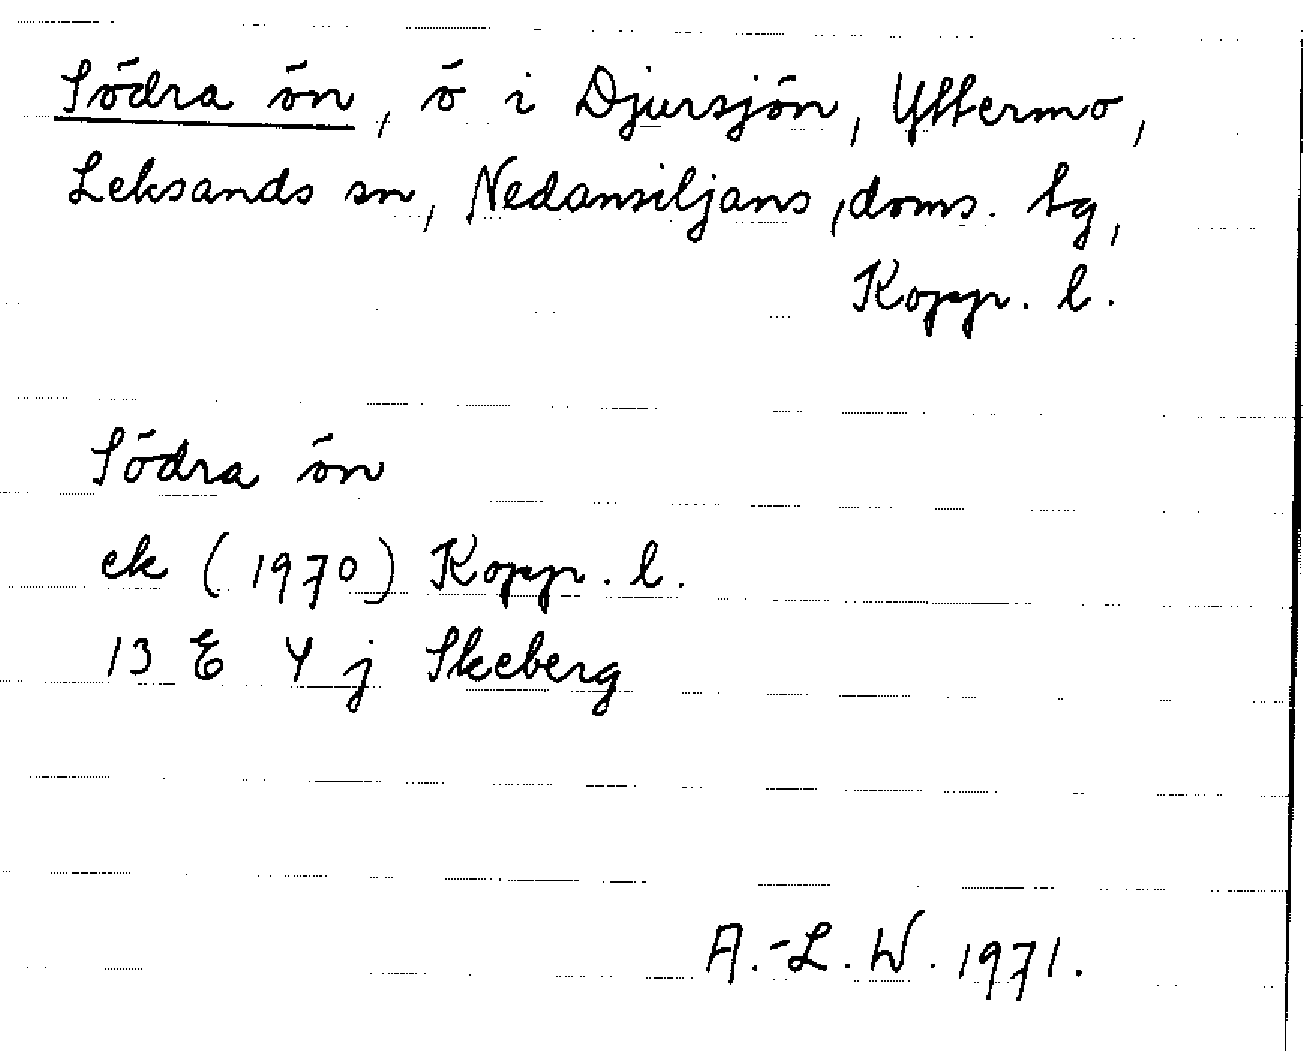 Södra ön, ö i Djursjön, Yttermo,
Leksands sn, Nedansiljans, doms. tg,
Kopp. l.
Södra ön
ek (1970) Kopp. l.
13 E 4 j Skeberg
A.-L. W. 1971.